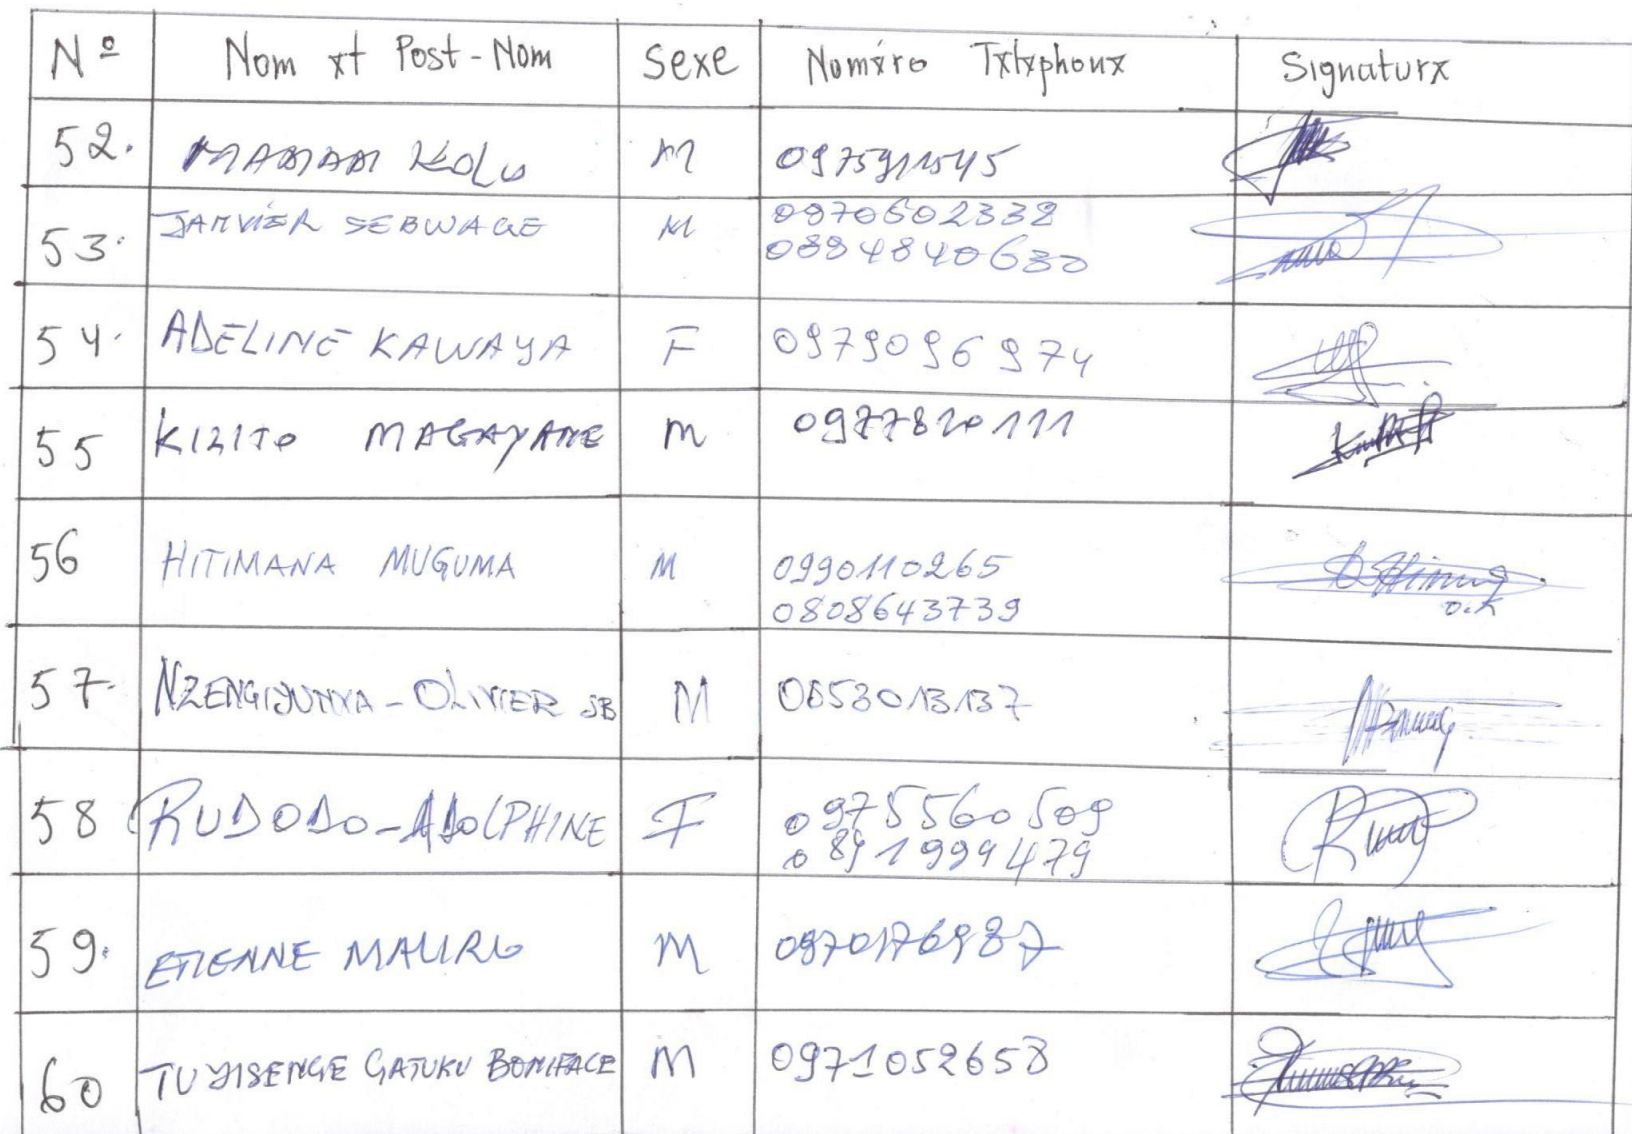 Nº Nom xt Post-Nom Sexe Numxro Txlxphonx Signaturx
52. KOLO M
53. JANVIER SEBWAGE M 0970602332
0894840630
54. ADELINE KAWAYA F 0979096974
55 KIZITO MAGAYANE M 0977820111
56 HITIMANA MUGUMA M 0990110265
0808643739
57. NZENGIYUMVA-OLIVIER JB M
58 RUDODO-ADOLPHINE F 0975560509
0891999479
59. ETIENNE MAURO M 0970176987
60 TUYISENGE GATUKU BONIFACE M 0971052658